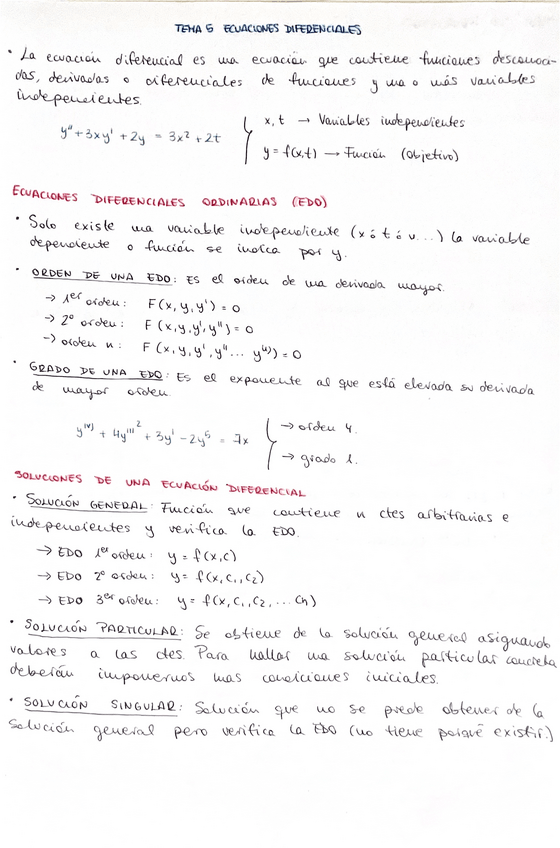 TEMA 5 ECUACIONES DIFERENCIALES
· La ecuación diferencial es una ecuación que contiene funciones desconoci-
das, derivadas o diferenciales de funciones y una o más variables
independientes.
y'' + 3xy' + 2y = 3x² + 2t
x, t → Variables independientes
y = f(x,t) → Función (objetivo)
ECUACIONES DIFERENCIALES ORDINARIAS (EDO)
· Solo existe una variable independiente (x ó t ó u...) la variable
dependiente o función se indica por y.
· ORDEN DE UNA EDO: Es el orden de una derivada mayor.
→ 1er orden: F(x, y, y') = 0
→ 2º orden: F(x, y, y', y'') = 0
→ orden n: F(x, y, y', y''... y⁽ⁿ⁾) = 0
· GRADO DE UNA EDO: Es el exponente al que está elevada su derivada
de mayor orden.
y^(IV) + 4y'''² + 3y' - 2y⁵ = 7x
→ orden 4.
→ grado 1.
SOLUCIONES DE UNA ECUACIÓN DIFERENCIAL
· SOLUCIÓN GENERAL: Función que contiene n ctes arbitrarias e
independientes y verifica la EDO.
→ EDO 1er orden: y = f(x, C)
→ EDO 2º orden: y = f(x, C₁, C₂)
→ EDO 3er orden: y = f(x, C₁, C₂, ... Cn)
· SOLUCIÓN PARTICULAR: Se obtiene de la solución general asignando
valores a las ctes. Para hallar una solución particular concreta
deberán imponernos unas condiciones iniciales.
· SOLUCIÓN SINGULAR: Solución que no se puede obtener de la
solución general pero verifica la EDO (no tiene porqué existir.)